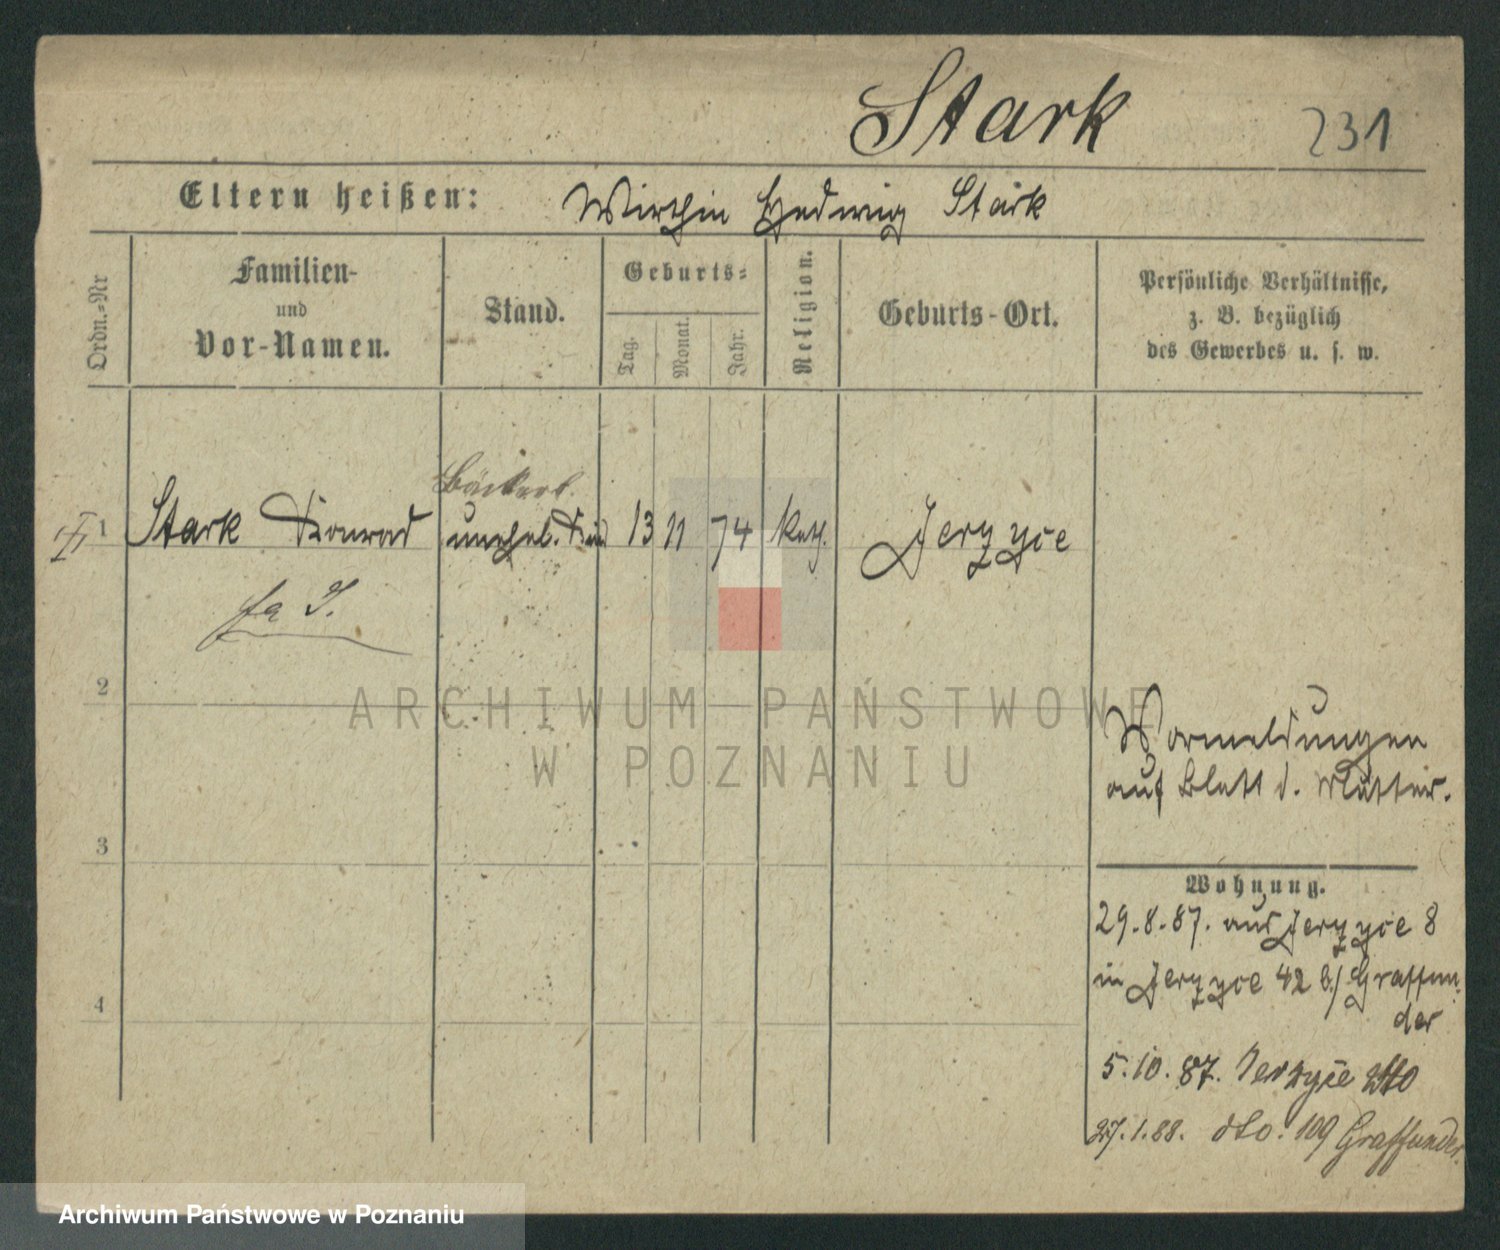 Stark 231
Eltern heißen: Wirthin Hedwig Stark
Ordn.-Nr
Familien-
und
Vor-Namen.
Stand.
Geburts-
Tag.
Monat.
Jahr.
Religion.
Geburts-Ort.
Persönliche Verhältnisse,
z. B. bezüglich
des Gewerbes u. s. w.
1 Stark Konrad unehel. Kind 13 11 74 kath. Jerzyce
2
Vormeldungen
auf Blatt d. Mutter.
3
Wohnung.
29.8.87. aus Jerzyce 8
in Jerzyce 42 b/ Graffun-
der
4
5.10.87. Jerzyce
27.1.88. dto. 109 Graffunder
ARCHIWUM PAŃSTWOWE
W POZNANIU
Archiwum Państwowe w Poznaniu